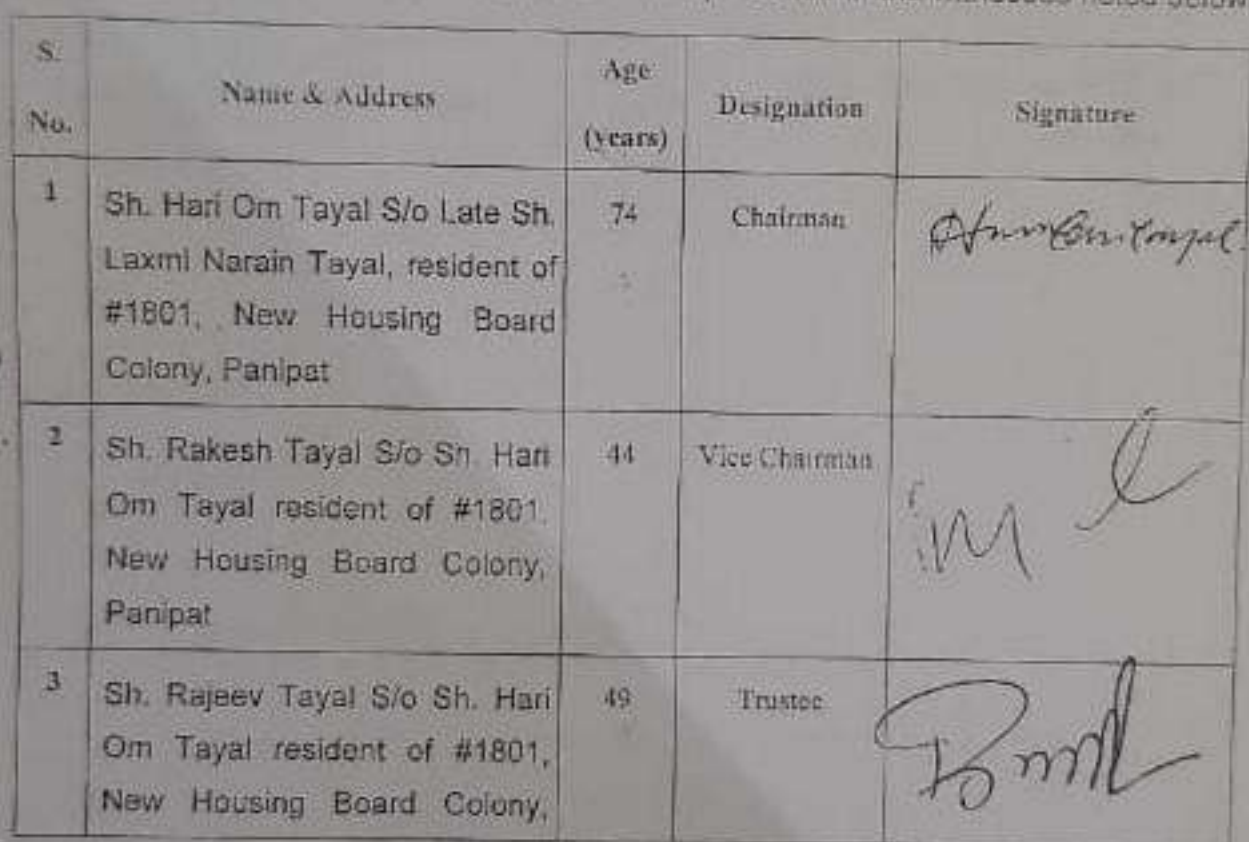 noted below
S. No.
Name & Address
Age (years)
Designation
Signature
1
Sh. Hari Om Tayal S/o Late Sh.
Laxmi Narain Tayal, resident of
#1801, New Housing Board
Colony, Panipat
74
Chairman
2
Sh. Rakesh Tayal S/o Sh. Hari
Om Tayal resident of #1801,
New Housing Board Colony,
Panipat
44
Vice Chairman
3
Sh. Rajeev Tayal S/o Sh. Hari
Om Tayal resident of #1801,
New Housing Board Colony,
49
Trustee